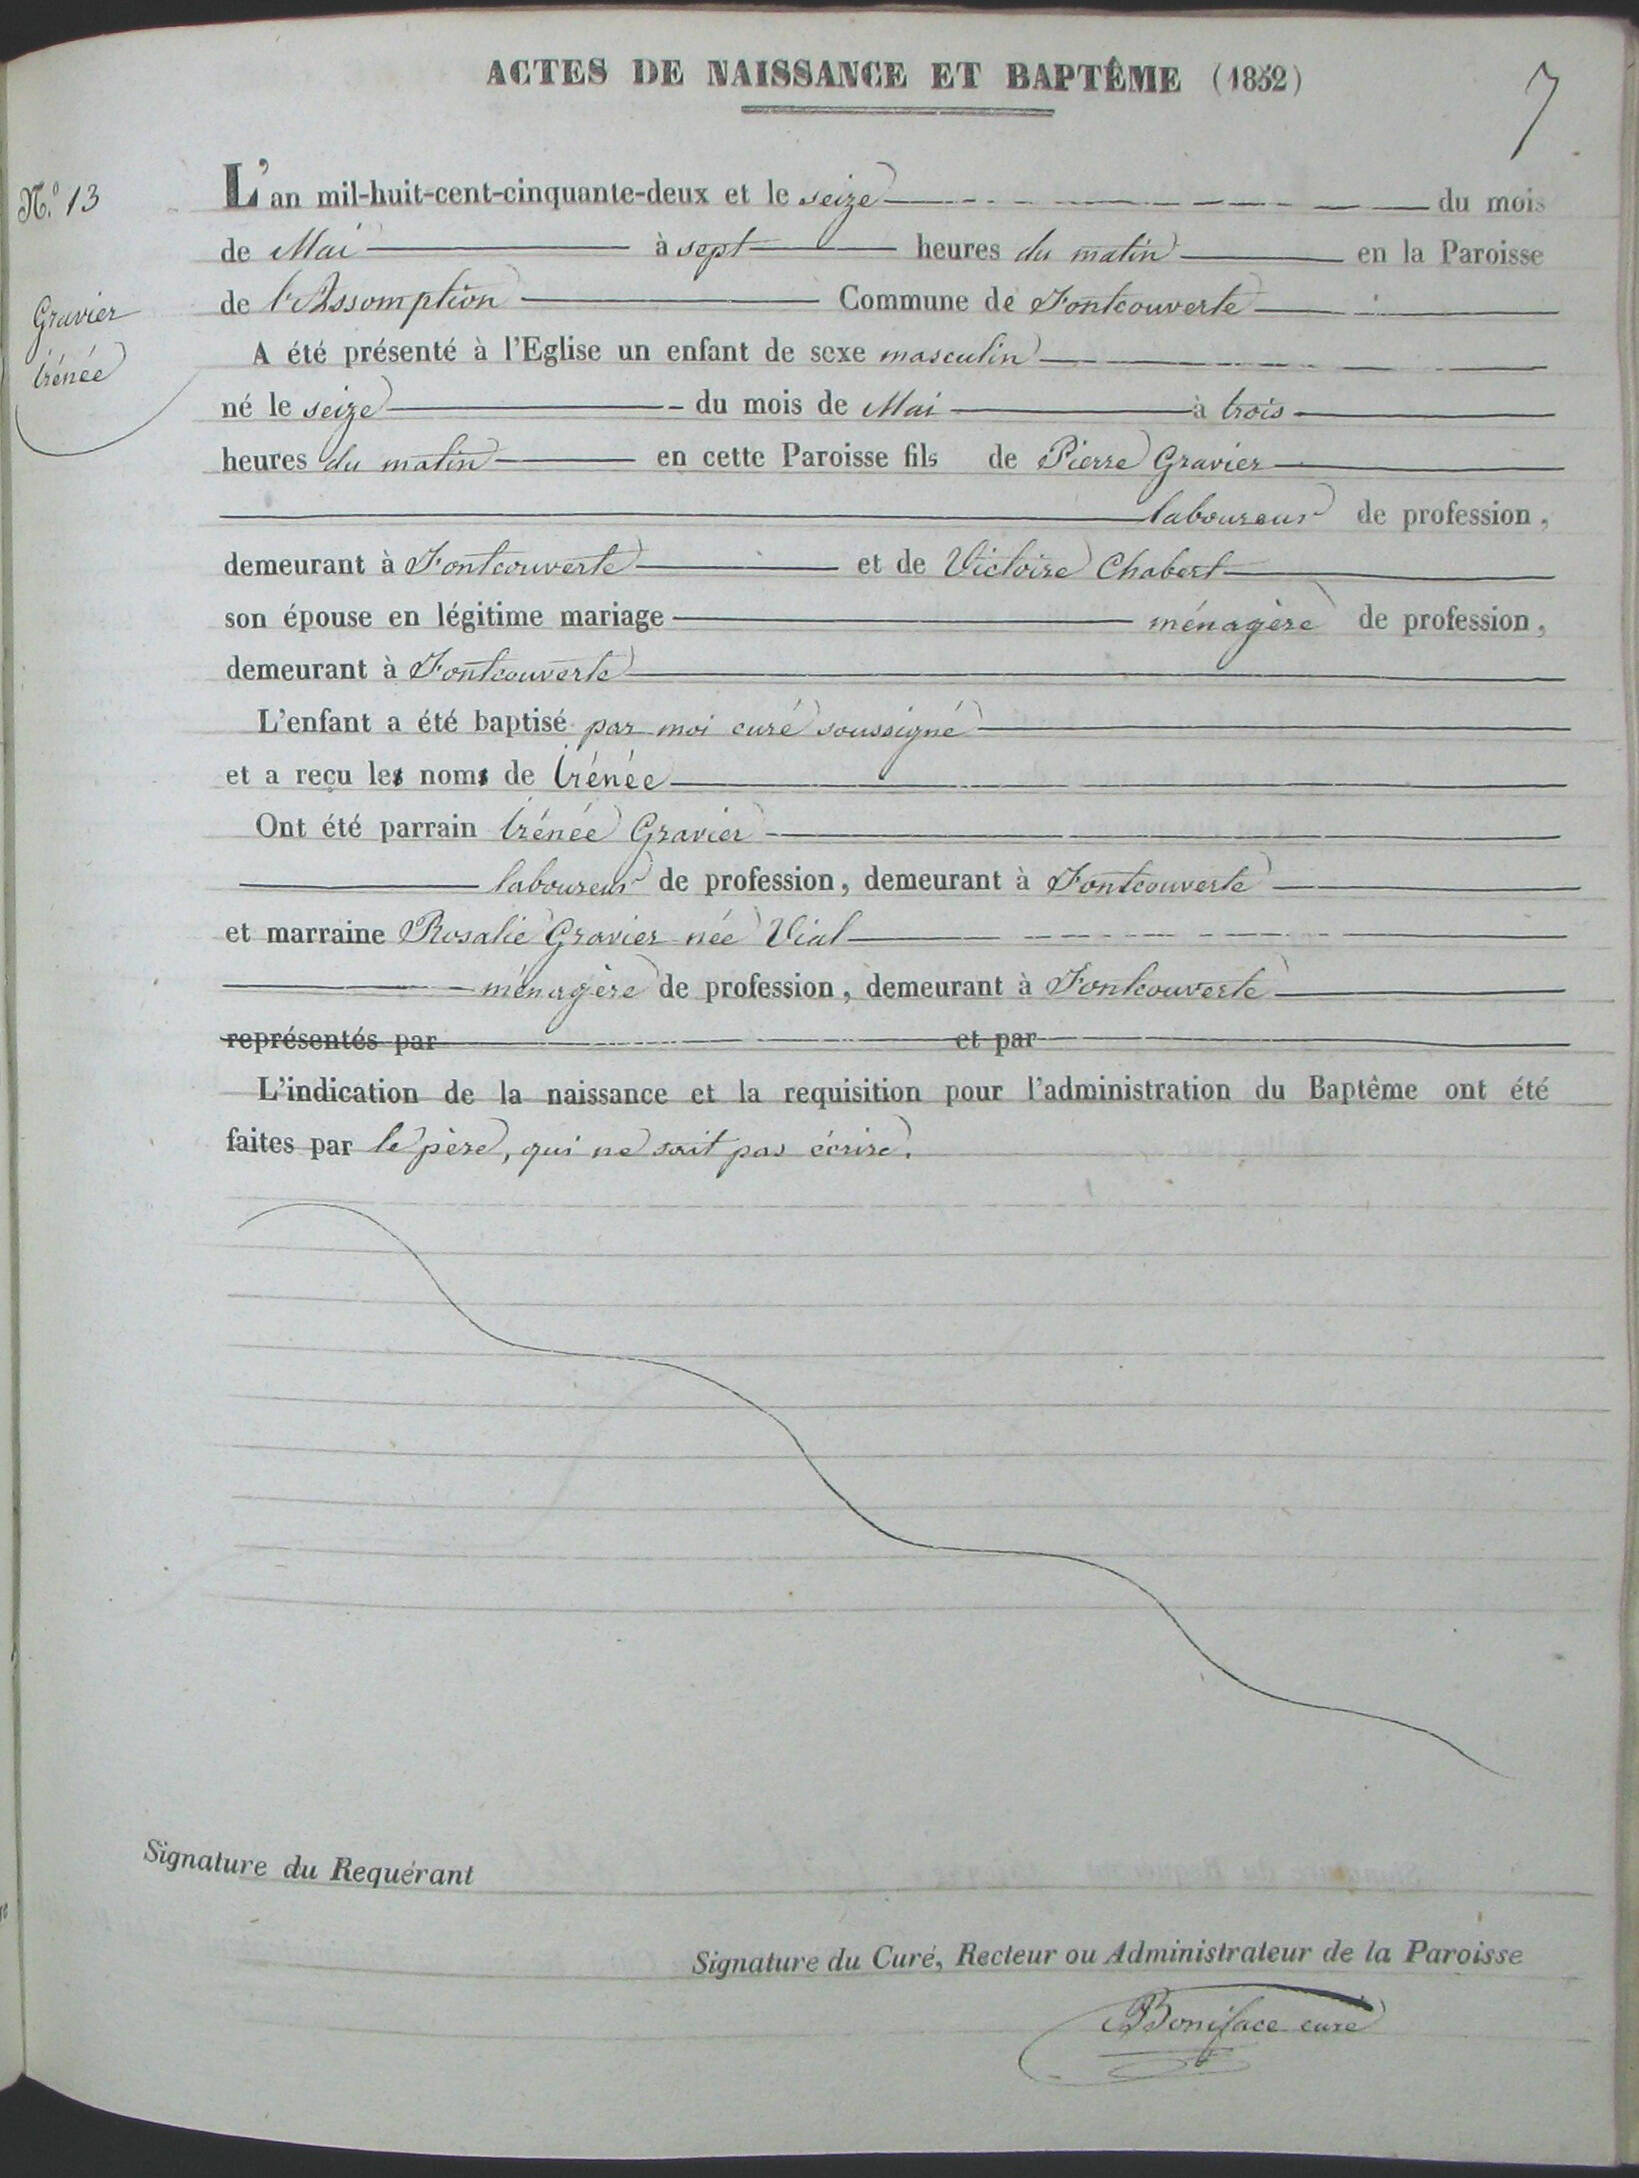 ACTES DE NAISSANCE ET BAPTÊME (1852)
7
N.º 13
Gravier
Irénée
L'an mil-huit-cent-cinquante-deux et le seize du mois
de Mai à sept heures du matin en la Paroisse
de l'Assomption Commune de Fontcouverte
A été présenté à l'Eglise un enfant de sexe masculin
né le seize du mois de Mai à trois
heures du matin en cette Paroisse fils de Pierre Gravier
laboureur de profession,
demeurant à Fontcouverte et de Victoire Chabert
son épouse en légitime mariage ménagère de profession,
demeurant à Fontcouverte
L'enfant a été baptisé par moi curé soussigné
et a reçu les noms de Irénée
Ont été parrain Irénée Gravier
laboureur de profession, demeurant à Fontcouverte
et marraine Rosalie Gravier née Vial
ménagère de profession, demeurant à Fontcouverte
représentés par et par
L'indication de la naissance et la requisition pour l'administration du Baptême ont été
faites par le père, qui ne sait pas écrire.
Signature du Requérant
Signature du Curé, Recteur ou Administrateur de la Paroisse
Boniface curé